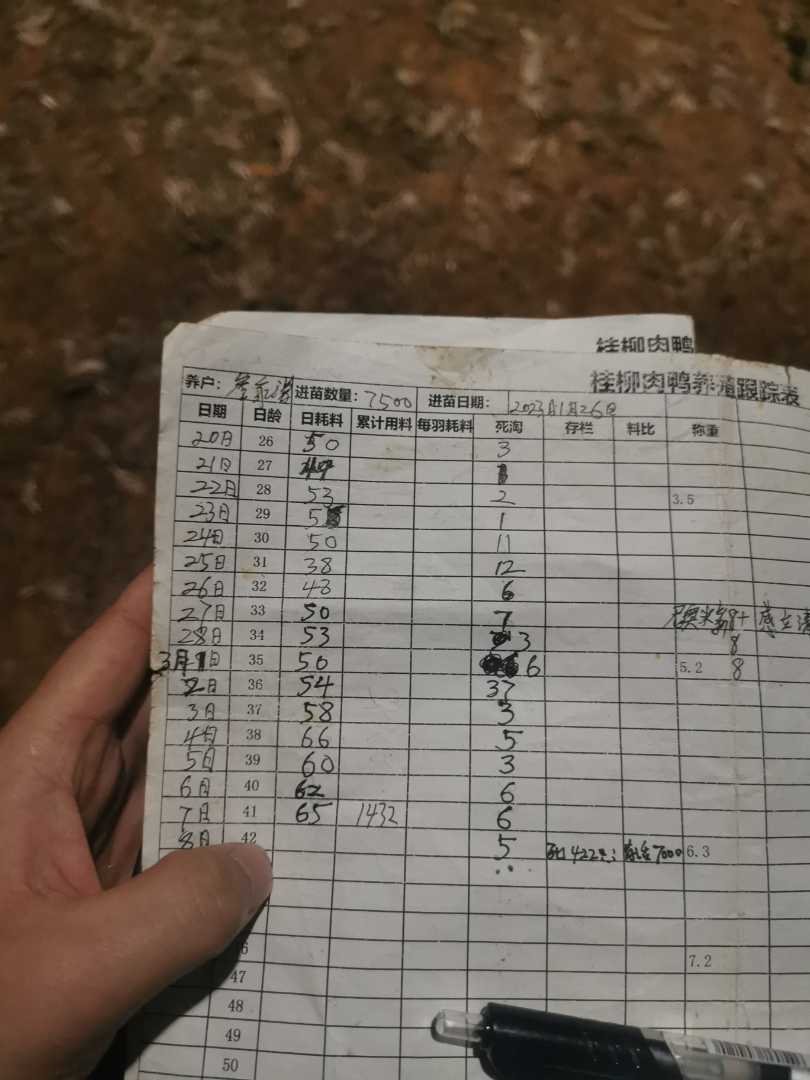 桂柳肉鸭
桂柳肉鸭养殖跟踪表
养户： 进苗数量：7500 进苗日期：2023年1月26日
日期 日龄 日耗料 累计用料 每羽耗料 死淘 存栏 料比 称重
20日 26 50 3
21日 27
22日 28 53 2 3.5
23日 29 1
24日 30 50 11
25日 31 38 12
26日 32 48 6
27日 33 50 7
28日 34 53 3 8
3月1日 35 50 6 5.2 8
2日 36 54 37
3日 37 58 3
4日 38 66 5
5日 39 60 3
6日 40 62 6
7日 41 65 1432 6
8日 42 5 422 7000 6.3
7.2
47
48
49
50